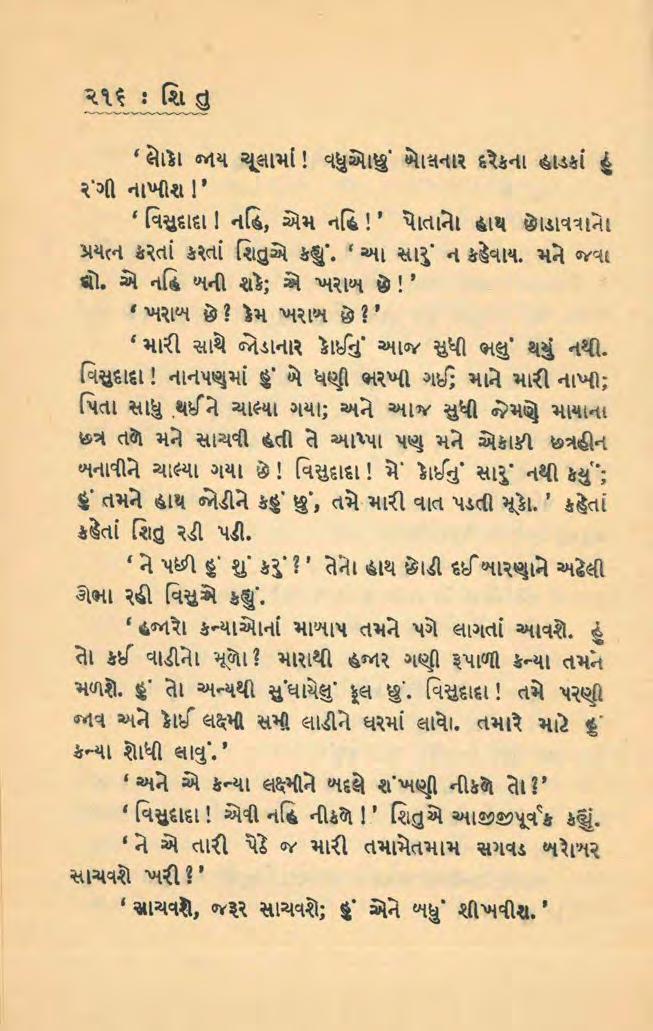 ૨૧૬ : શિ તુ
‘લોકો જાય ચૂલામાં! વધુઓછું બોલનાર દરેકના હાડકાં હું
રંગી નાખીશ!’
‘વિસુદાદા! નહિ, એમ નહિ!’ પોતાનો હાથ છોડાવવાનો
પ્રયત્ન કરતાં કરતાં શિતુએ કહ્યું. ‘આ સારું ન કહેવાય. મને જવા
દ્યો. એ નહિ બની શકે; એ ખરાબ છે!’
‘ખરાબ છે? કેમ ખરાબ છે?’
‘મારી સાથે જોડાનાર કોઈનું આજ સુધી ભલું થયું નથી.
વિસુદાદા! નાનપણમાં હું બે ધણી ભરખી ગઈ; માને મારી નાખી;
પિતા સાધુ થઈને ચાલ્યા ગયા; અને આજ સુધી જેમણે માયાના
છત્ર તળે મને સાચવી હતી તે આપ્પા પણ મને એકાકી છત્રહીન
બનાવીને ચાલ્યા ગયા છે! વિસુદાદા! મેં કોઈનું સારું નથી કર્યું;
હું તમને હાથ જોડીને કહું છું, તમે મારી વાત પડતી મૂકો.’ કહેતાં
કહેતાં શિતુ રડી પડી.
‘ને પછી હું શું કરું?’ તેનો હાથ છોડી દઈ બારણાને અઢેલી
ઊભા રહી વિસુએ કહ્યું.
‘હજારો કન્યાઓનાં માબાપ તમને પગે લાગતાં આવશે. હું
તો કઈ વાડીનો મૂળો? મારાથી હજાર ગણી રૂપાળી કન્યા તમને
મળશે. હું તો અન્યથી સુંઘાયેલું ફૂલ છું. વિસુદાદા! તમે પરણી
જાવ અને કોઈ લક્ષ્મી સમી લાડીને ઘરમાં લાવો. તમારે માટે હું
કન્યા શોધી લાવું.’
‘અને એ કન્યા લક્ષ્મીને બદલે શંખણી નીકળે તો?’
‘વિસુદાદા! એવી નહિ નીકળે!’ શિતુએ આજીજીપૂર્વક કહ્યું.
‘ને એ તારી પેઠે જ મારી તમામેતમામ સગવડ બરોબર
સાચવશે ખરી?’
‘સાચવશે, જરૂર સાચવશે; હું એને બધું શીખવીશ.’